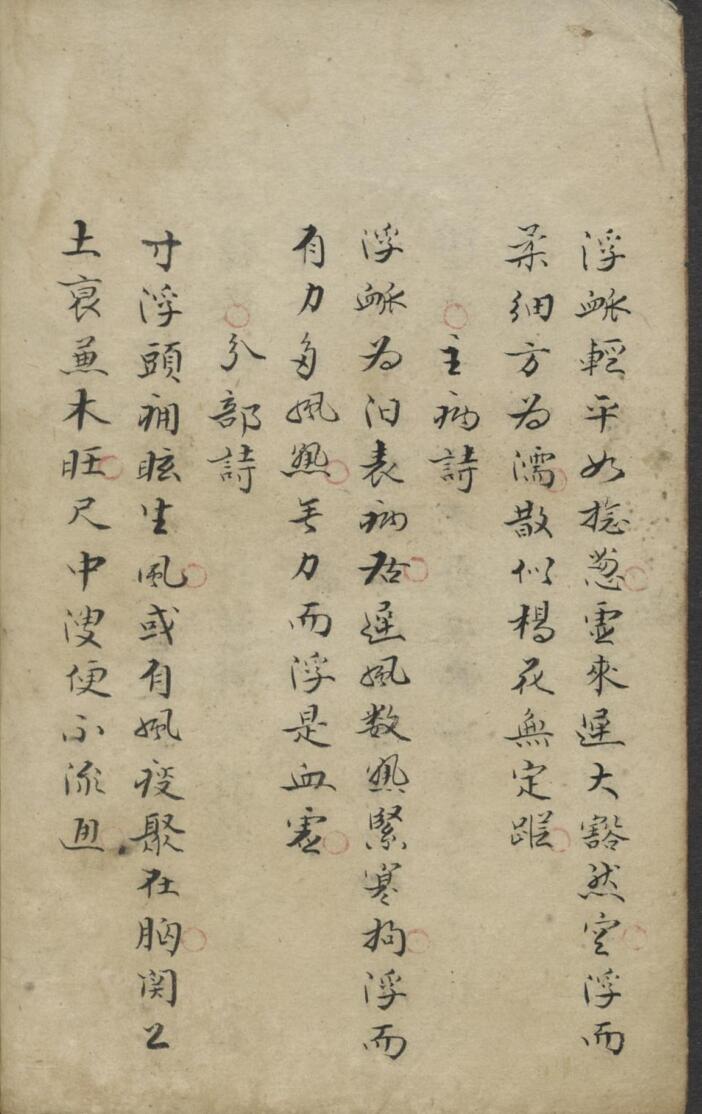 浮脉輕平如捻葱虚來遲大豁然空浮而
柔细方为濡散似楊花無定踪
主病詩
浮脉为阳表病居遲風数热緊寒拘浮而
有力多風热无力而浮是血虚
分部詩
寸浮頭痛眩生風或有風痰聚在胸関上
土衰兼木旺尺中溲便不流通